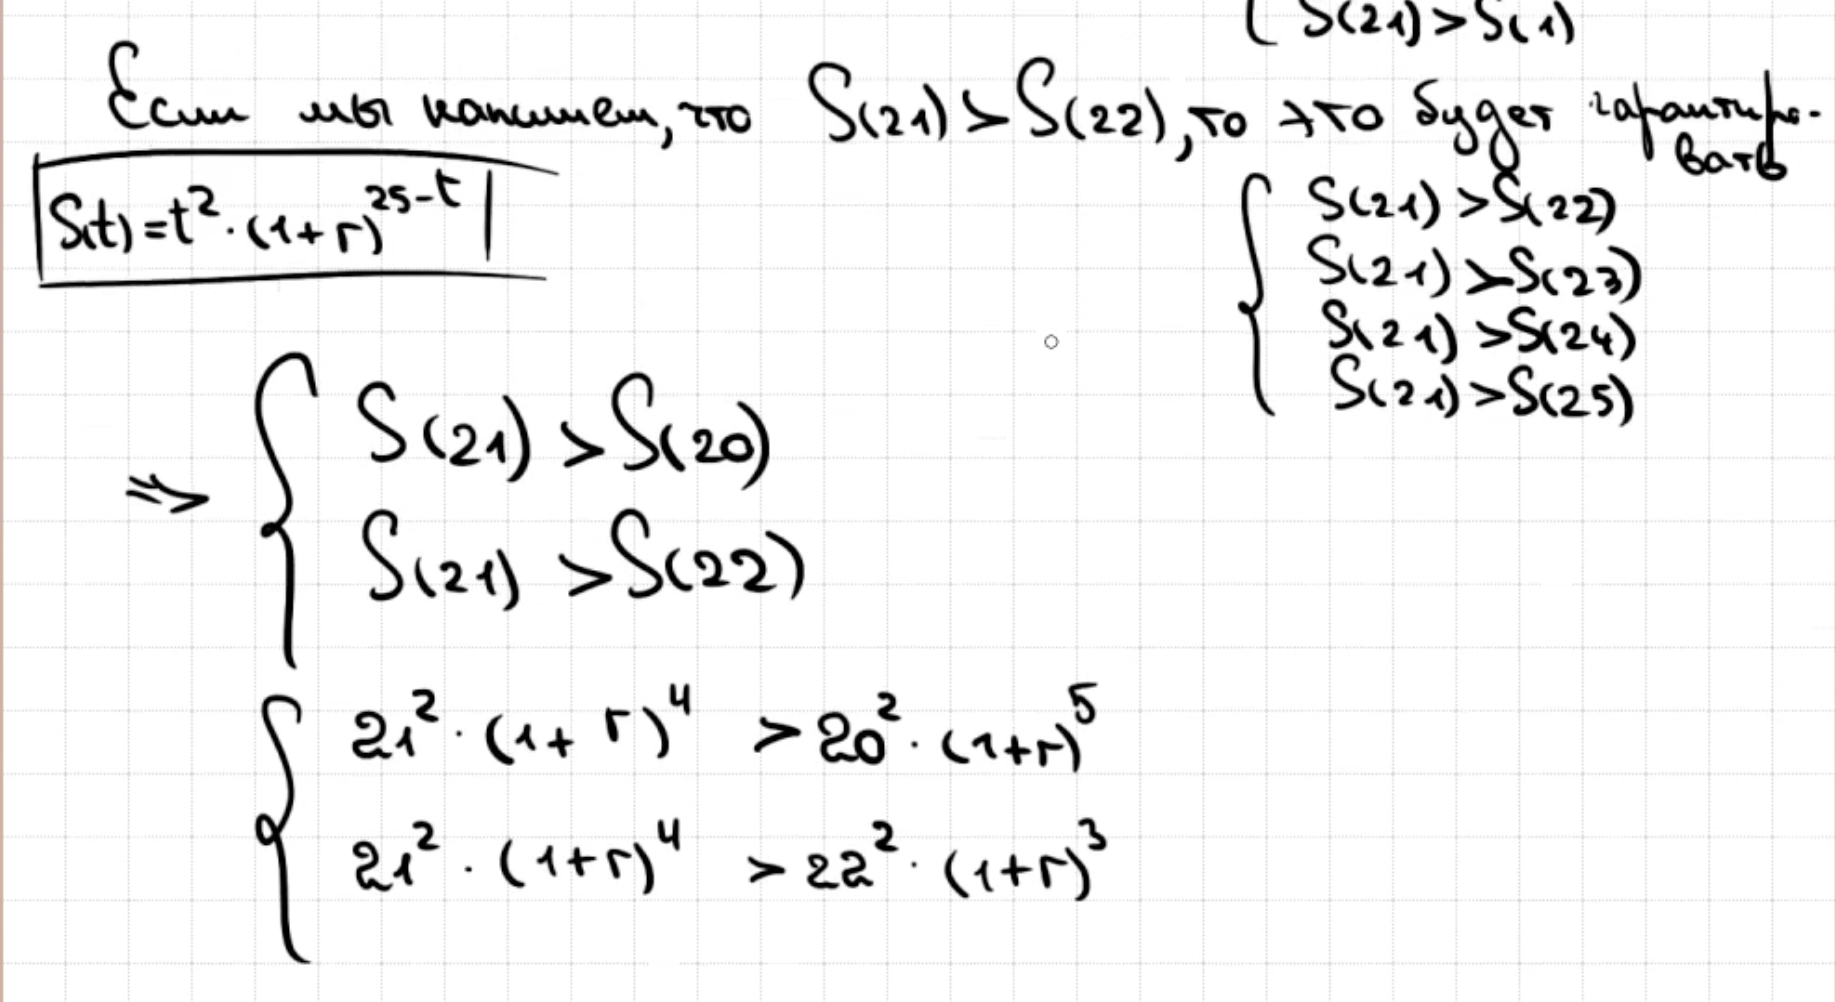 S(21)>S(1)
Если мы напишем, что S(21)>S(22), то это будет гарантиро-
вать
S(t)=t²·(1+r)^{25-t}
S(21)>S(22)
S(21)>S(23)
S(21)>S(24)
S(21)>S(25)
=> S(21)>S(20)
S(21)>S(22)
21²·(1+r)⁴ >20²·(1+r)⁵
21²·(1+r)⁴ >22²·(1+r)³